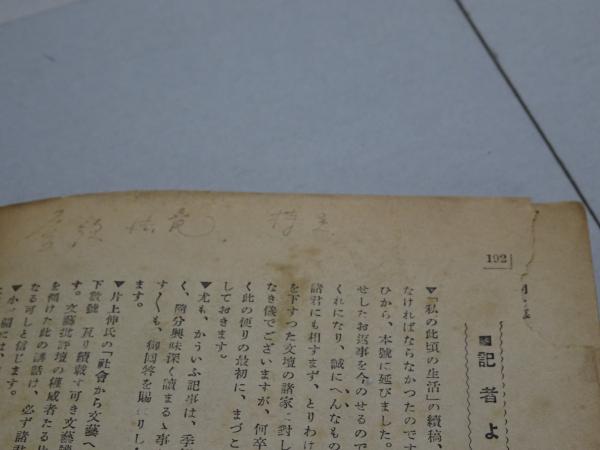 192
記者よ
▼「私の此頃の生活」の續稿、
なければならなかつたのです
ひから、本號に延びました。
せしたお返事を今のせるので
くれになり、誠にへんなもの
諸君にも相すまず、とりわけ
を下すつた文壇の諸家に對し
なき儀でございますが、何卒
く此の便りの最初に、まづこ
しておきます。
▼尤も、かういふ記事は、季
く、隨分興味深く讀まるゝ事
す〲も、御回答を賜
ます。
▼片上伸氏の「社會から文藝へ
下數號 亙り續載す可き文藝
す。文藝批評壇の權威者たる片
を傾けた此の講話は、必ず諸君
なる可しと信じます。